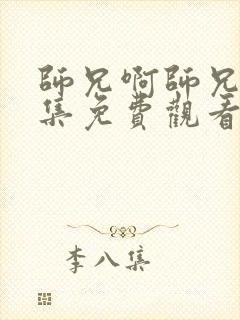 師兄啊師兄
集免費觀看
李八集